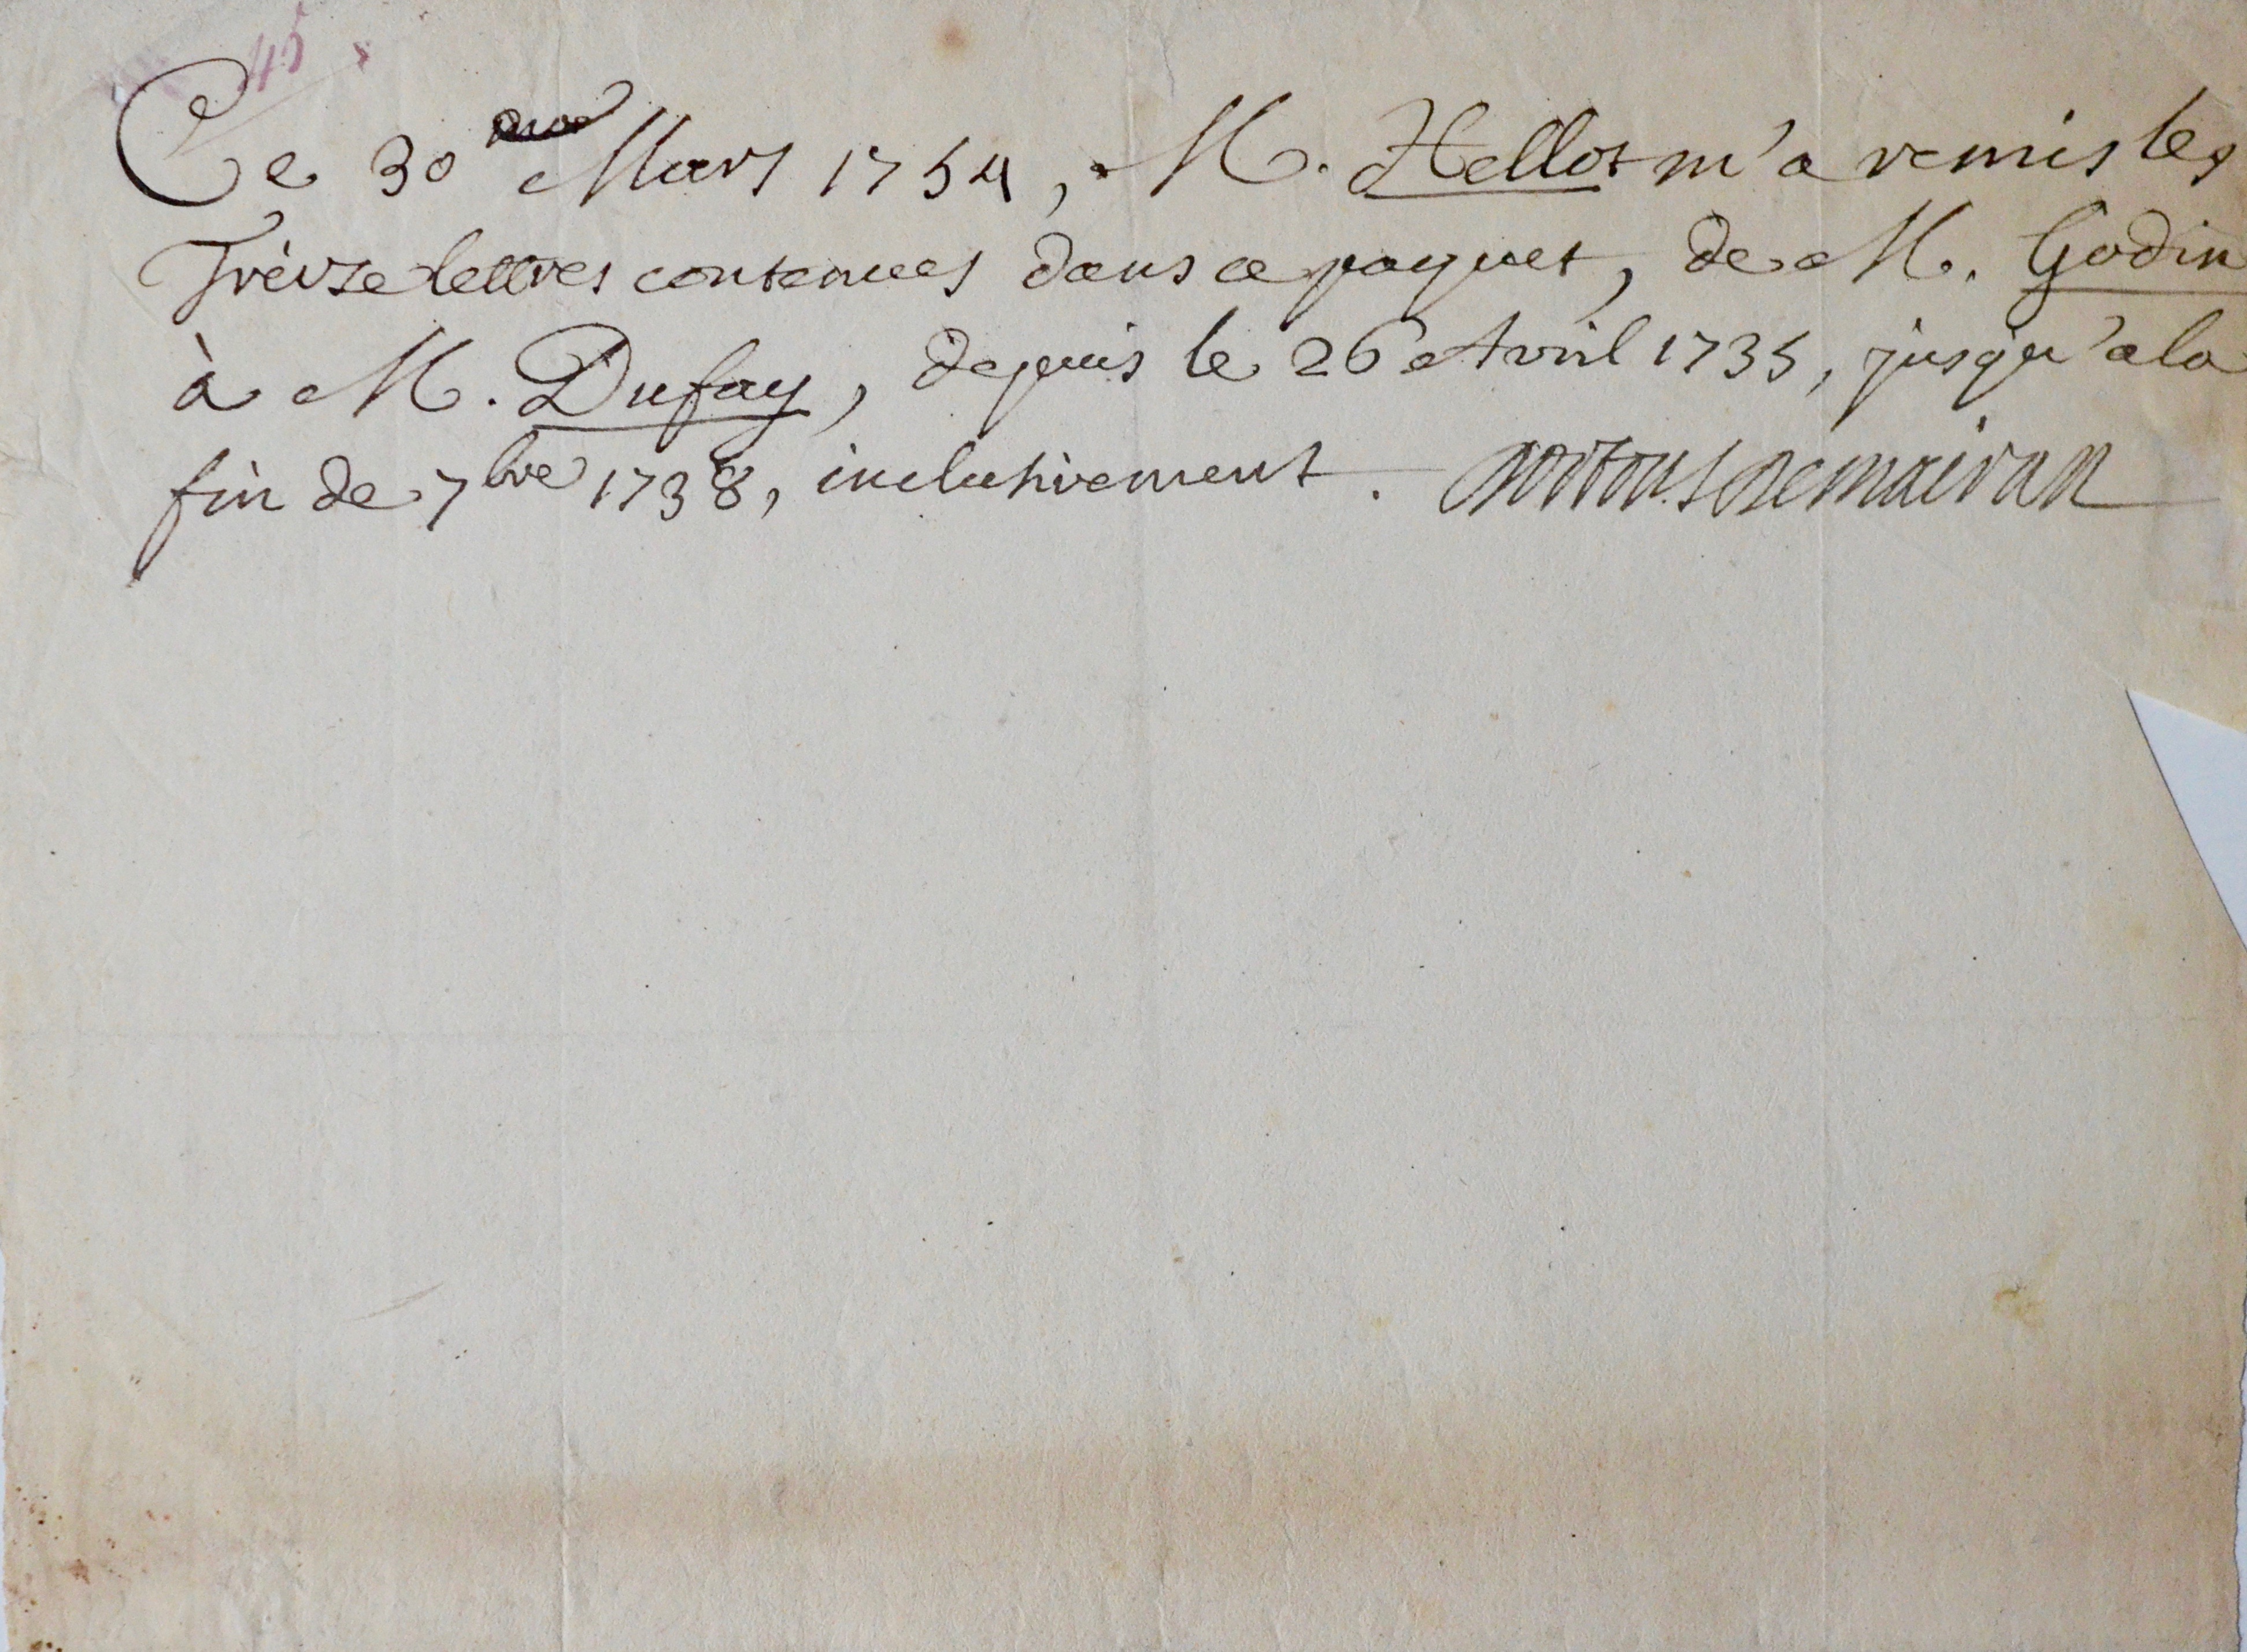 45
Ce 30 Mars 1754, M. Hellot m'a remis les
Treize lettres contenues dans ce paquet, de M. Godin
à M. Dufay, depuis le 26 Avril 1735, jusqu'a la
fin de 7bre 1738, inclusivement. Dortous de mairan